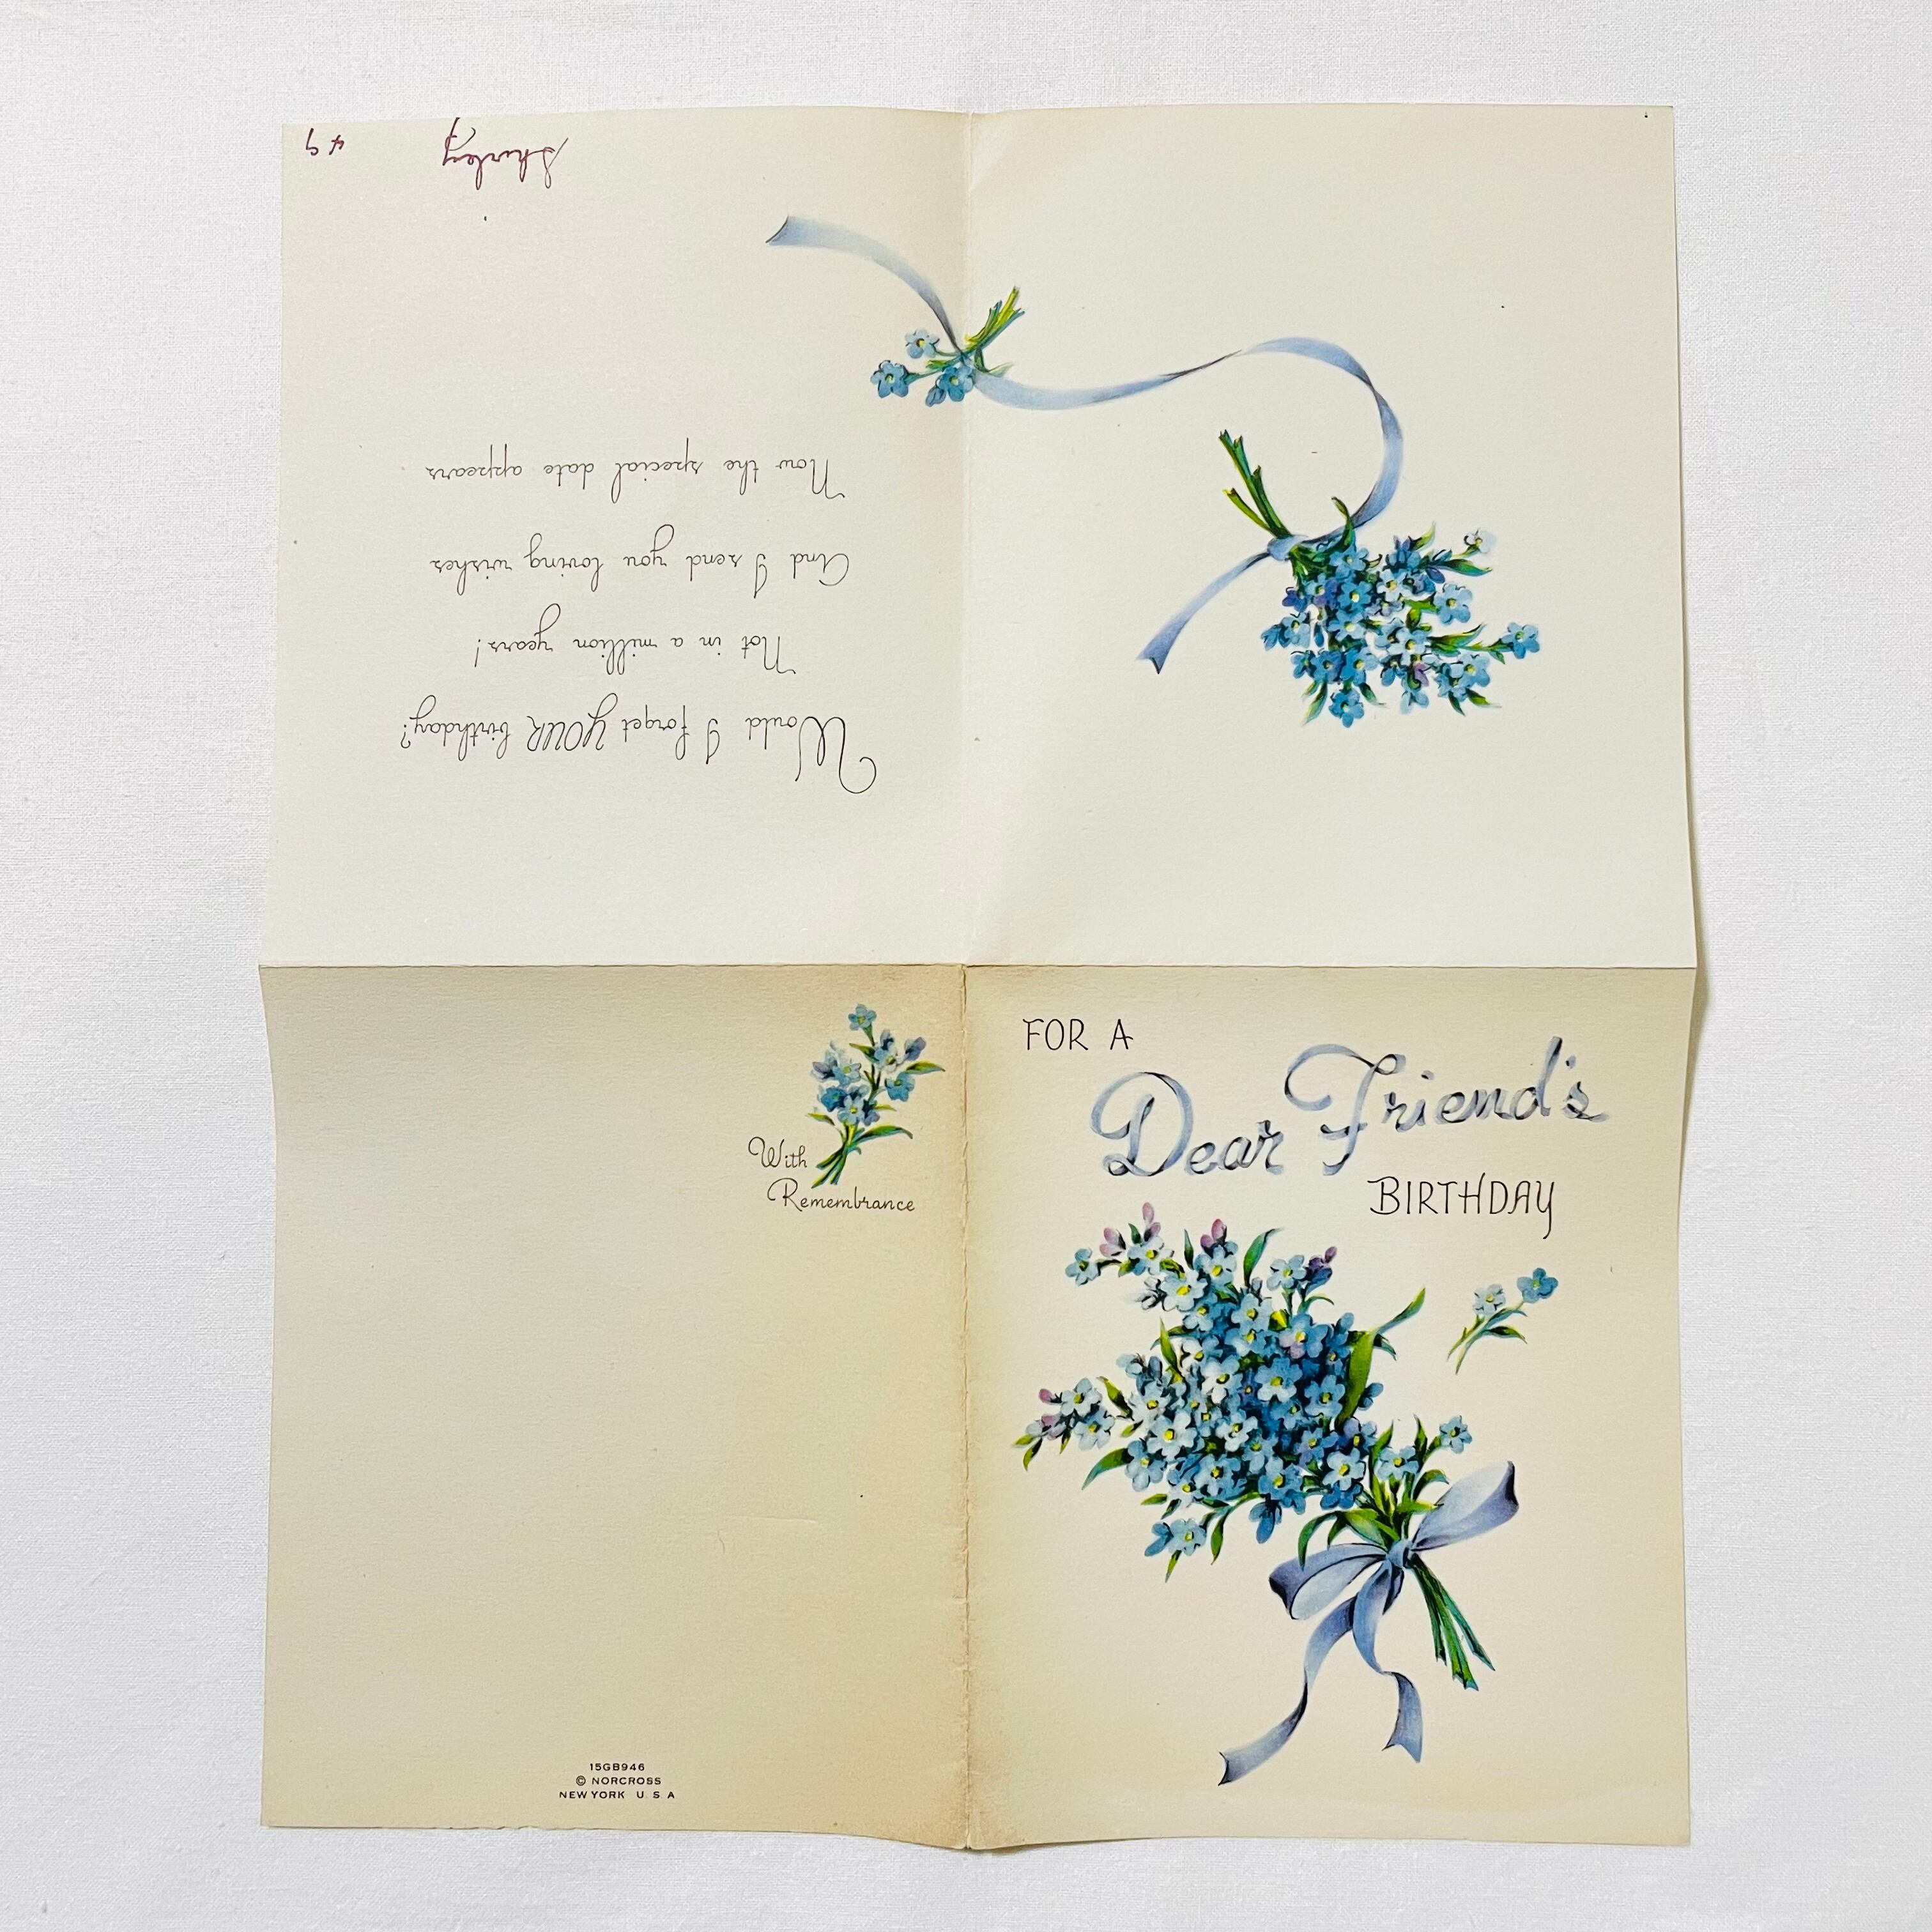 FOR A
Dear Friend's
BIRTHDAY
With
Remembrance
15GB946
© NORCROSS
NEW YORK U. S. A
Would I forget YOUR birthday?
Not in a million years!
And I send you loving wishes
Now the special date appears
Shirley
49